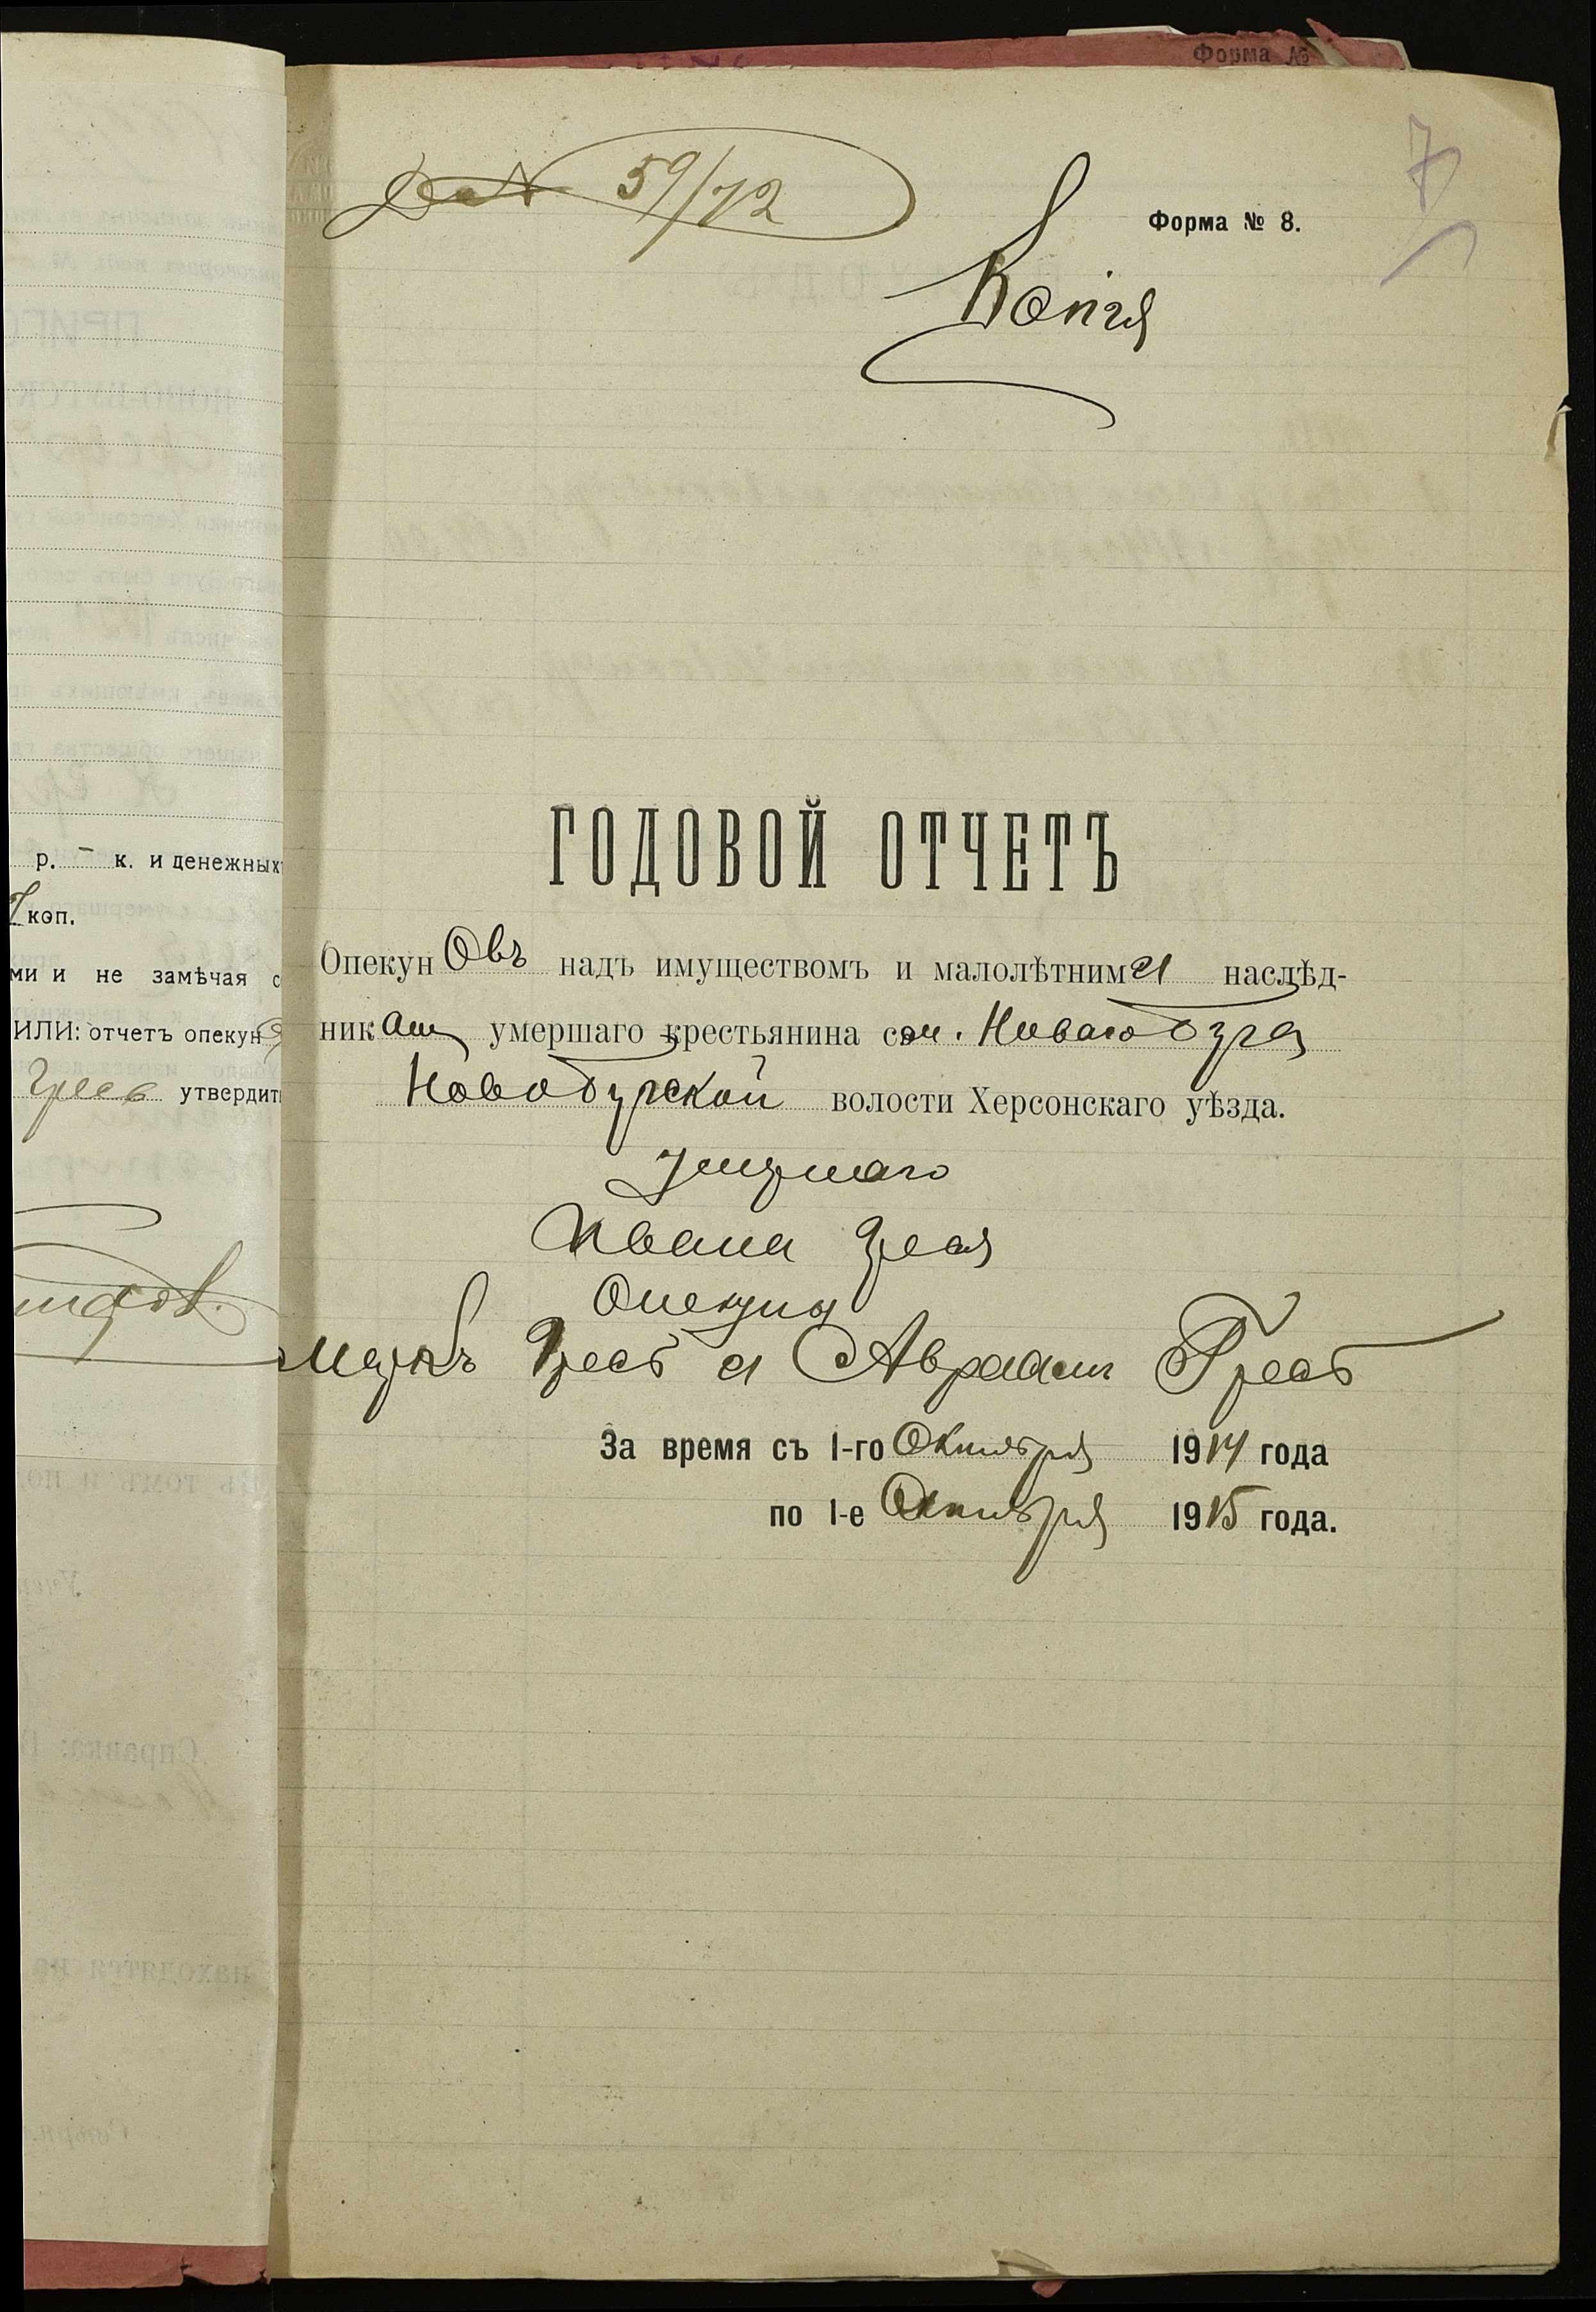 Форма №
59/72
7
Форма № 8.
Копія
ГОДОВОЙ ОТЧЕТЪ
Опекуновъ надъ имуществомъ и малолѣтними наслѣд-
никами умершаго крестьянина с. Новаго Буга
Новобугской волости Херсонскаго уѣзда.
Умершаго
Ивана
Опекуны
и Авраам
За время съ 1-го Октября 1914 года
по 1-е Октября 1915 года.
р. – к. и денежных
коп.
ми и не замѣчая с
ИЛИ: отчетъ опекун
утвердит